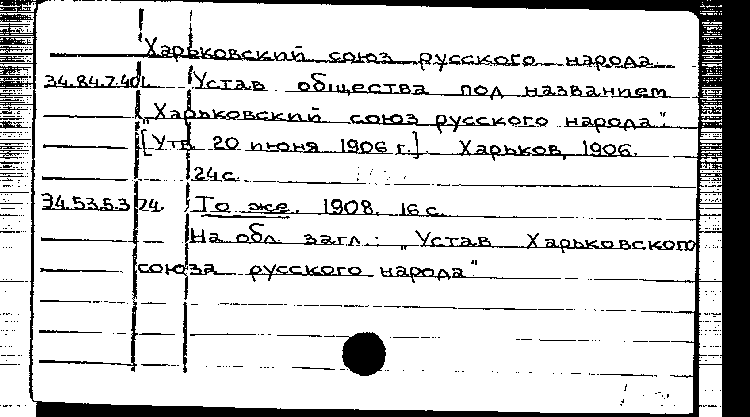 Харьковский союз русского народа
34.84.7.401. Устав общества под названием
„Харьковский союз русского народа".
[Утв. 20 июня 1906 г.]. Харьков, 1906.
24 с.
34.53.5.374. То же. 1908. 16 с.
На обл. загл.: „Устав Харьковского
союза русского народа"